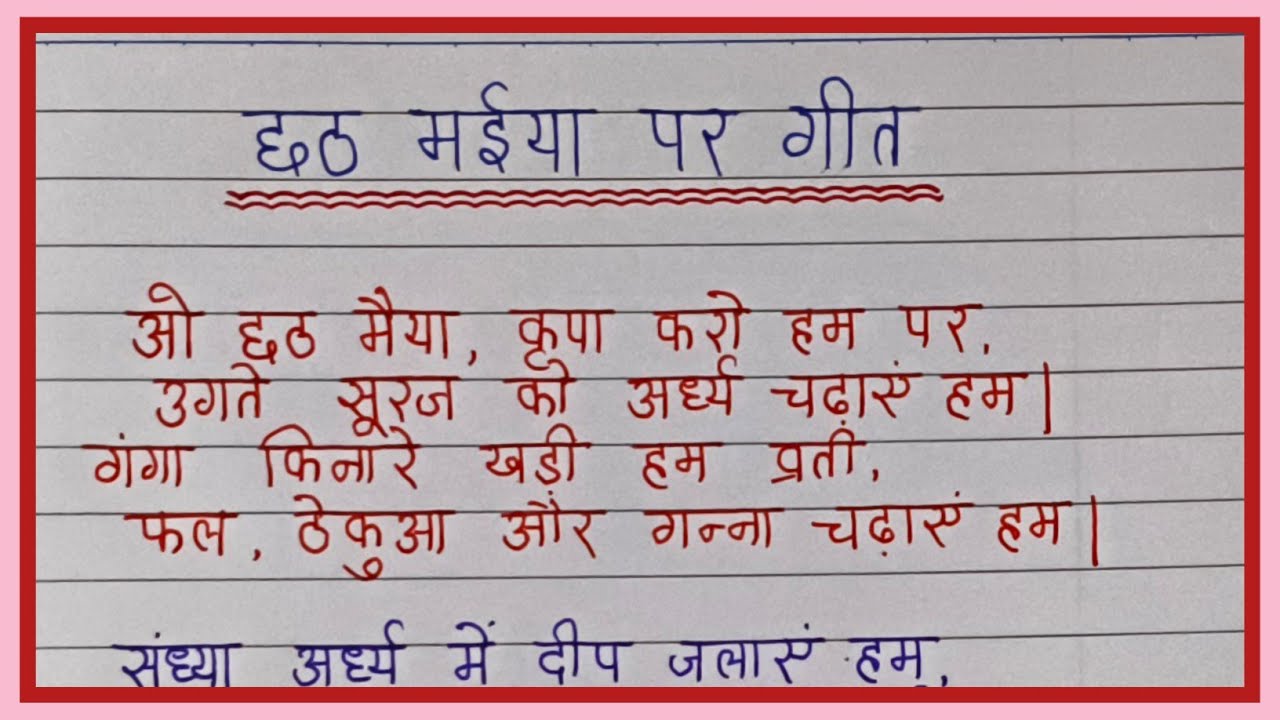 छठ मईया पर गीत
ओ छठ मैया, कृपा करो हम पर,
उगते सूरज को अर्ध्य चढ़ाएं हम|
गंगा किनारे खड़ी हम व्रती,
फल, ठेकुआ और गन्ना चढ़ाएं हम|
संध्या अर्ध्य में दीप जलाएं हम,